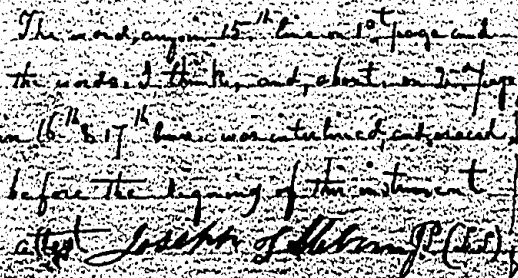 The word, any in 15th line on 1st page and
the words, I think, and, about, on 2nd page
in 16th & 17th lines was interlined, and, erased,
before the signing of this instrument
attest Joseph JP